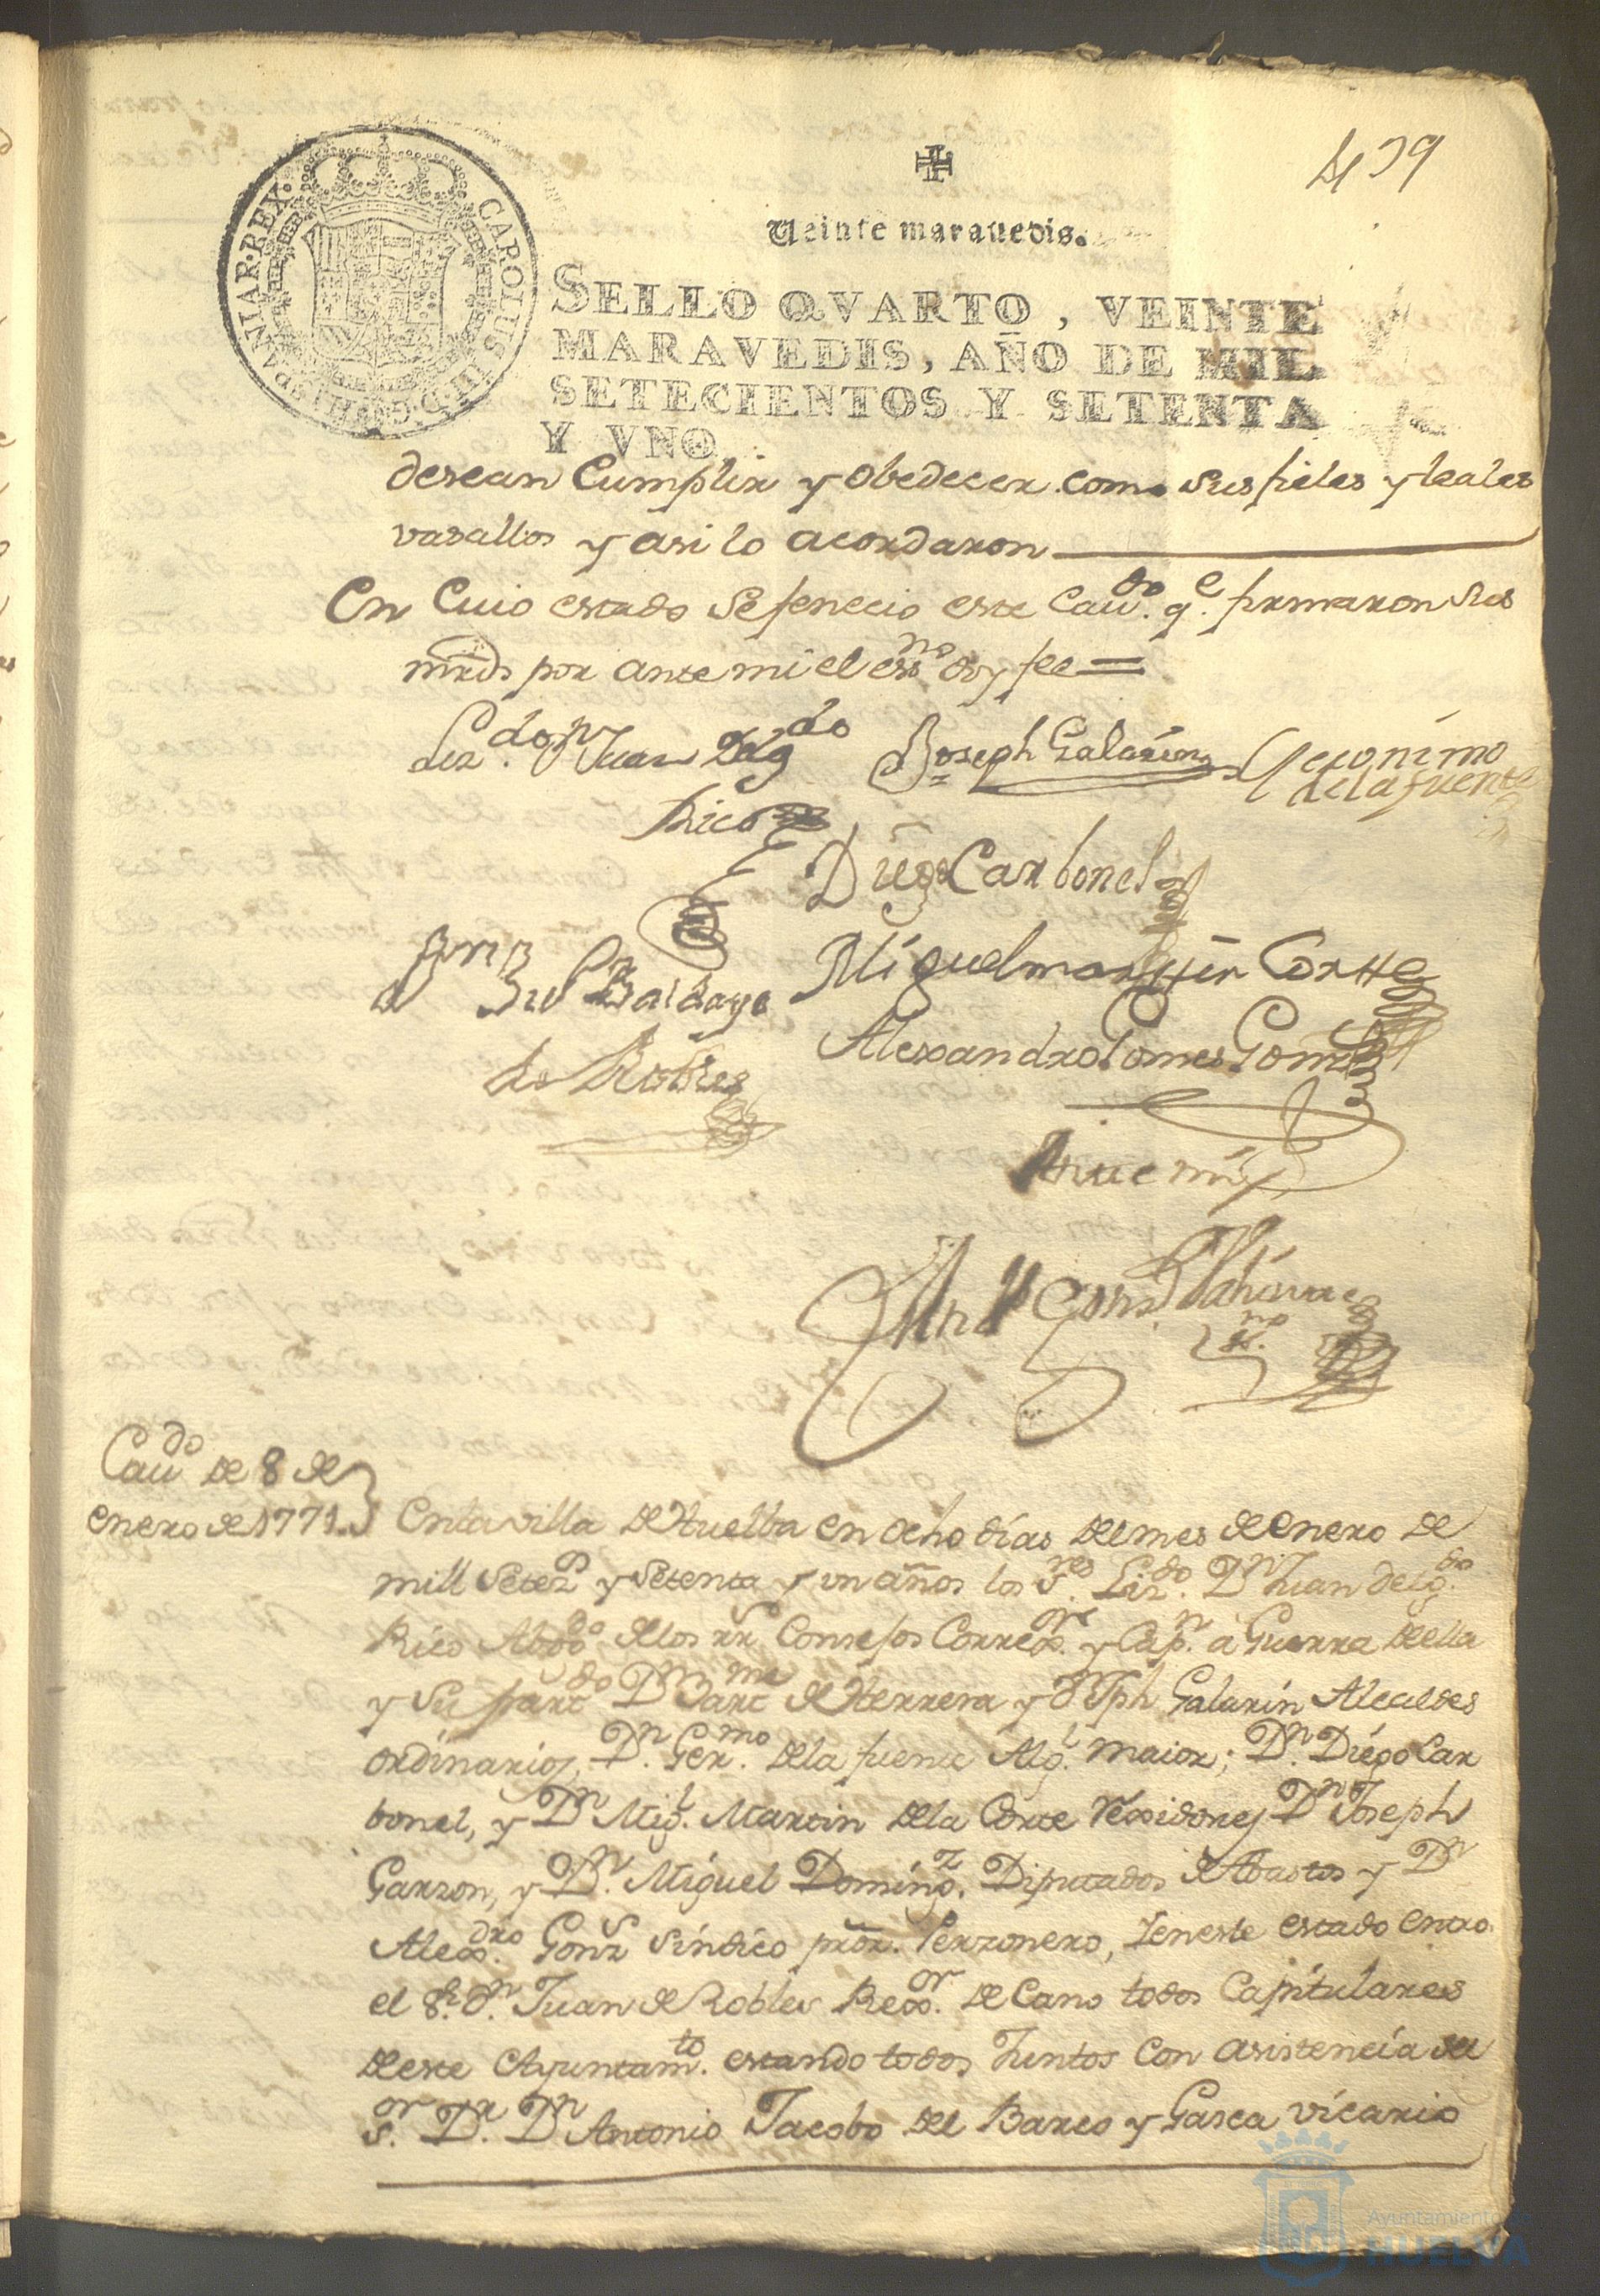 439
Veinte maravedis.
CAROLUS III D.G. HISPANIAR. REX.
SELLO QVARTO, VEINTE
MARAVEDIS, AÑO DE MIL
SETECIENTOS Y SETENTA
Y VNO.
desean Cumplir y obedecer como sus fieles y leales
vasallos y asi lo acordaron
En Cuio estado se fenecio este Cavdo. qe. firmaron sus
mrds por ante mi el essno doy fee =
Lizdo. Dn Juan Delgdo
Rico
Joseph Galarin
Geronimo
de la fuente
Diego Carbonel
Miguel martin Cortte
Baldayo
de Robles
Alexandro Gomes
Ante mi
Cavdo de 8 de
enero de 1771.
En la villa de Huelba en ocho días del mes de enero de
mill setezs y setenta y un años los Sres. Lizdo. Dn Juan Delgdo.
Rico Abogdo de los RRs Consejos Correxor. y Capn. a Guerra de ella
y su partdo Dn Bartme de Herrera y Dn Jph Galarín Alcaldes
ordinarios, Dn. Germo. de la fuente Algl. maior; Dn. Diégo Car
bonel, y Dn Migl. Martin de la Corte Rexidores Dn Joseph
Garzon, y Dn. Miguel Domingz. Diputados de Abastos y Dn
Alexdro. Gonz Síndico pror. Perzonero, Y en este estado entro
el Sr. Dn. Juan de Robles Rexor. de Cano todos Capitulares
de este Ayuntamto. estando todos Juntos Con asistencia del
Sor. Dr. Dn Antonio Jacobo del Barco y Gasca vicario
Ayuntamiento de
HUELVA